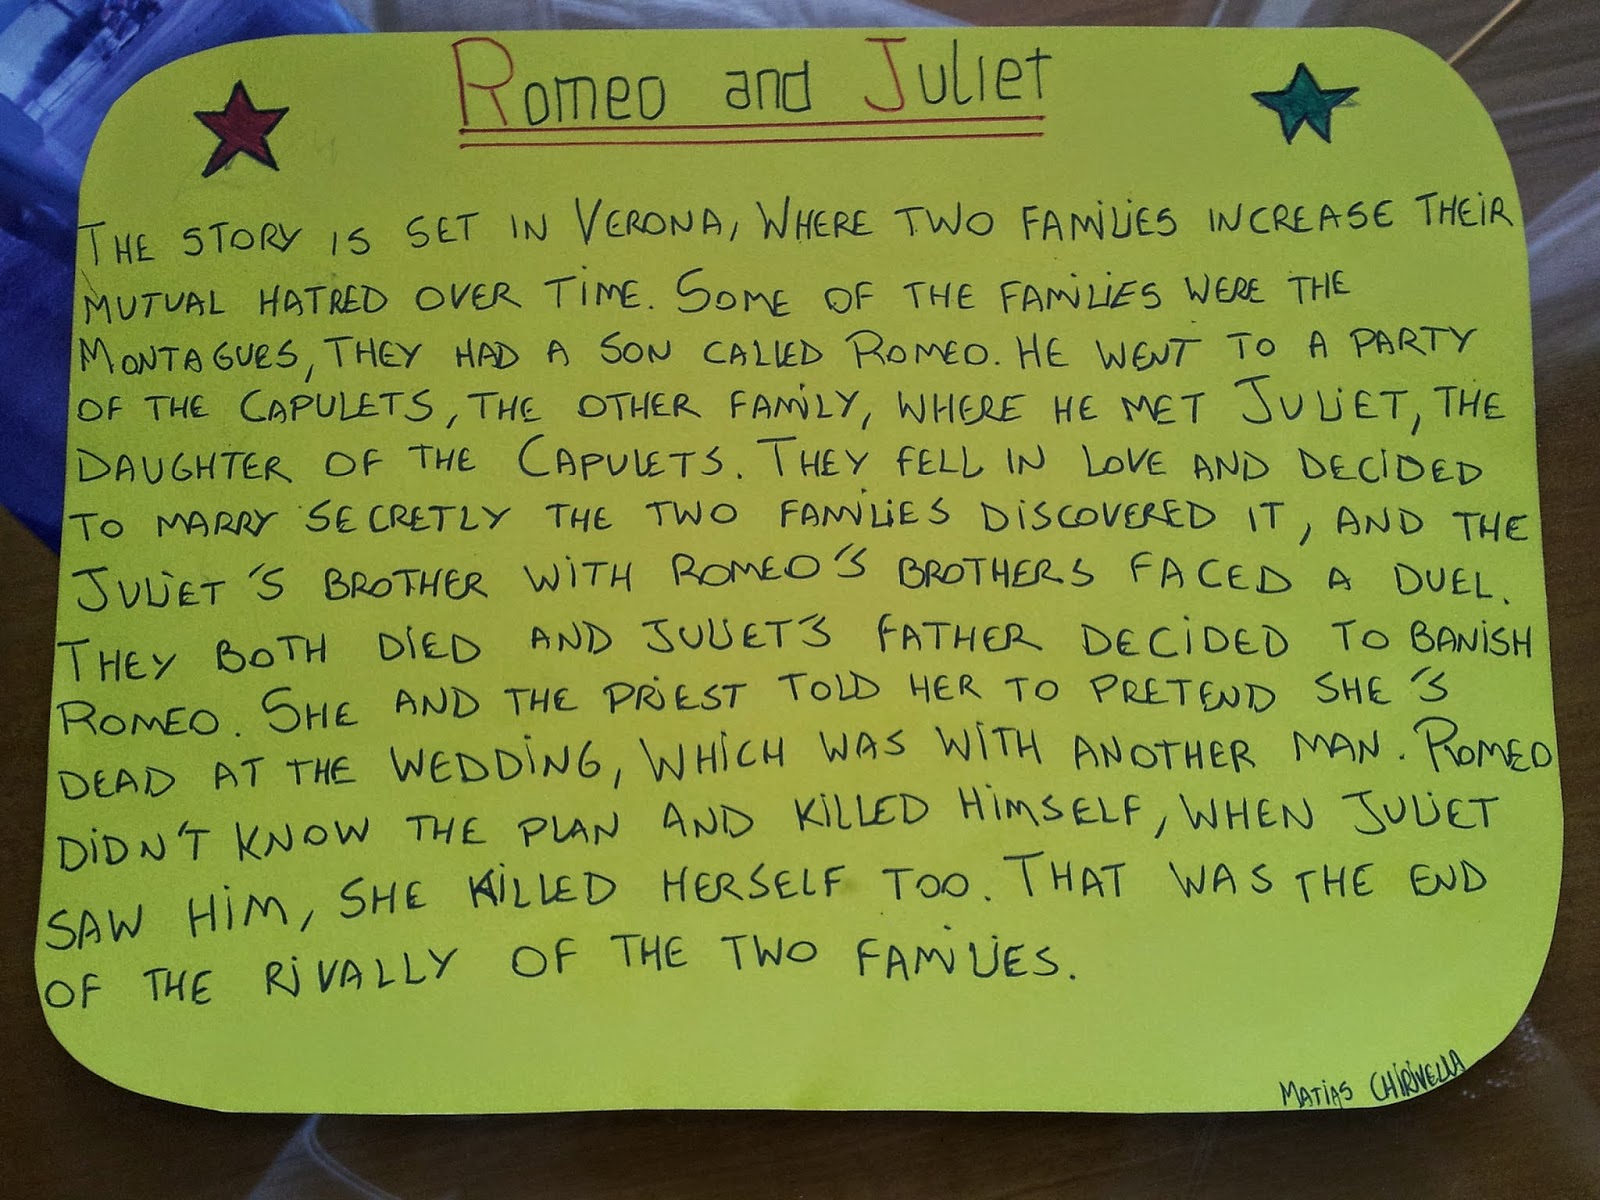 Romeo and Juliet
THE STORY IS SET IN VERONA, WHERE TWO FAMILIES INCREASE THEIR
MUTUAL HATRED OVER TIME. SOME OF THE FAMILIES WERE THE
MONTAGUES, THEY HAD A SON CALLED ROMEO. HE WENT TO A PARTY
OF THE CAPULETS, THE OTHER FAMILY, WHERE HE MET JULIET, THE
DAUGHTER OF THE CAPULETS. THEY FELL IN LOVE AND DECIDED
TO MARRY SECRETLY THE TWO FAMILIES DISCOVERED IT, AND THE
JULIET'S BROTHER WITH ROMEO'S BROTHERS FACED A DUEL.
THEY BOTH DIED AND JULIET'S FATHER DECIDED TO BANISH
ROMEO. SHE AND THE PRIEST TOLD HER TO PRETEND SHE'S
DEAD AT THE WEDDING, WHICH WAS WITH ANOTHER MAN. ROMEO
DIDN'T KNOW THE PLAN AND KILLED HIMSELF, WHEN JULIET
SAW HIM, SHE KILLED HERSELF TOO. THAT WAS THE END
OF THE RIVALLY OF THE TWO FAMILIES.
MATIAS CHIRIVELLA